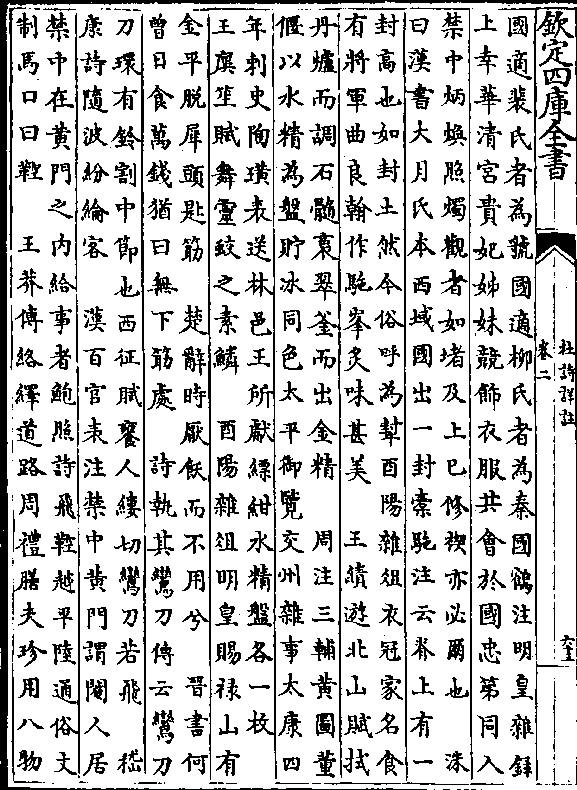 欽定四庫全書
杜詩詳註
卷二
國適裴氏者為虢國適柳氏者為秦國鶴注明皇雜録
上幸華清宮貴妃姊妹競飾衣服共會於國忠第同入
禁中炳煥照燭觀者如堵及上巳修禊亦必爾也 洙
曰漢書大月氏本西域國出一封橐駞注云脊上有一
封高也如封土然今俗呼為犎酉陽雜俎衣冠家名食
有將軍曲良翰作駞峯炙味甚美 王績遊北山賦拭
丹爐而調石髓裛翠釜而出金精 周注三輔黄圖董
偃以水精為盤貯冰同色太平御覽交州雜事太康四
年刺史陶璜表送林邑王所獻縹紺水精盤各一枚
王廙笙賦舞靈蛟之素鱗 酉陽雜俎明皇賜禄山有
金平脱犀頭匙筯 楚辭時厭飫而不用兮 晉書何
曾日食萬錢猶曰無下筯處 詩執其鸞刀傳云鸞刀
刀環有鈴割中節也西征賦饔人縷切鸞刀若飛 嵇
康詩隨波紛綸客 漢百官表注禁中黄門謂閹人居
禁中在黄門之内給事者鮑照詩飛鞚越平陸通俗文
制馬口曰鞚 王莽傳絡繹道路周禮膳夫珍用八物